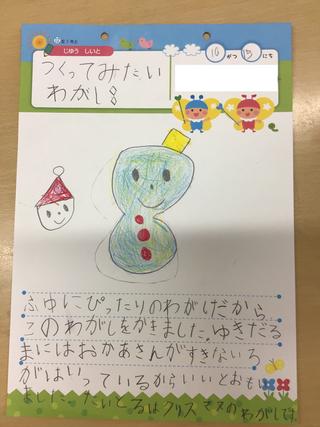 じゆう しいと
10 がつ 15 にち
つくってみたい
わがし
ふゆにぴったりのわがしだから、
このわがしをかきました。ゆきだる
まにはおかあさんがすきないろ
がはいっているからいいとおもい
ました。たいとるはクリスマスのわがしです。